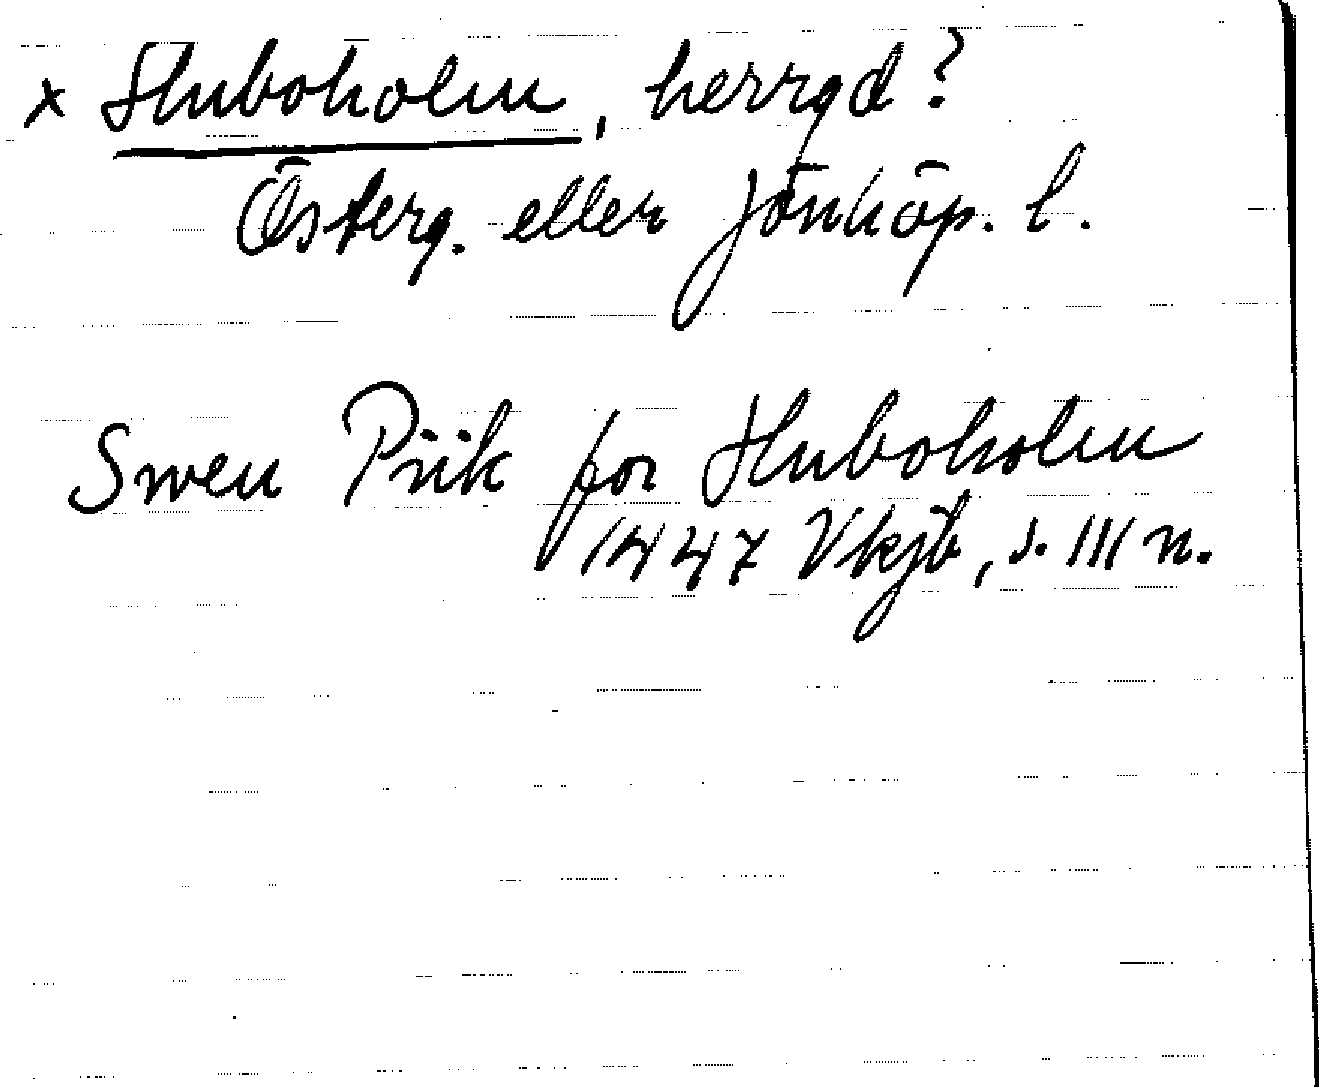 x Huboholm, herrgd?
Österg. eller Jönköp. l.
Swen Piik for Huboholm
1447 Vkjb, s. III n.